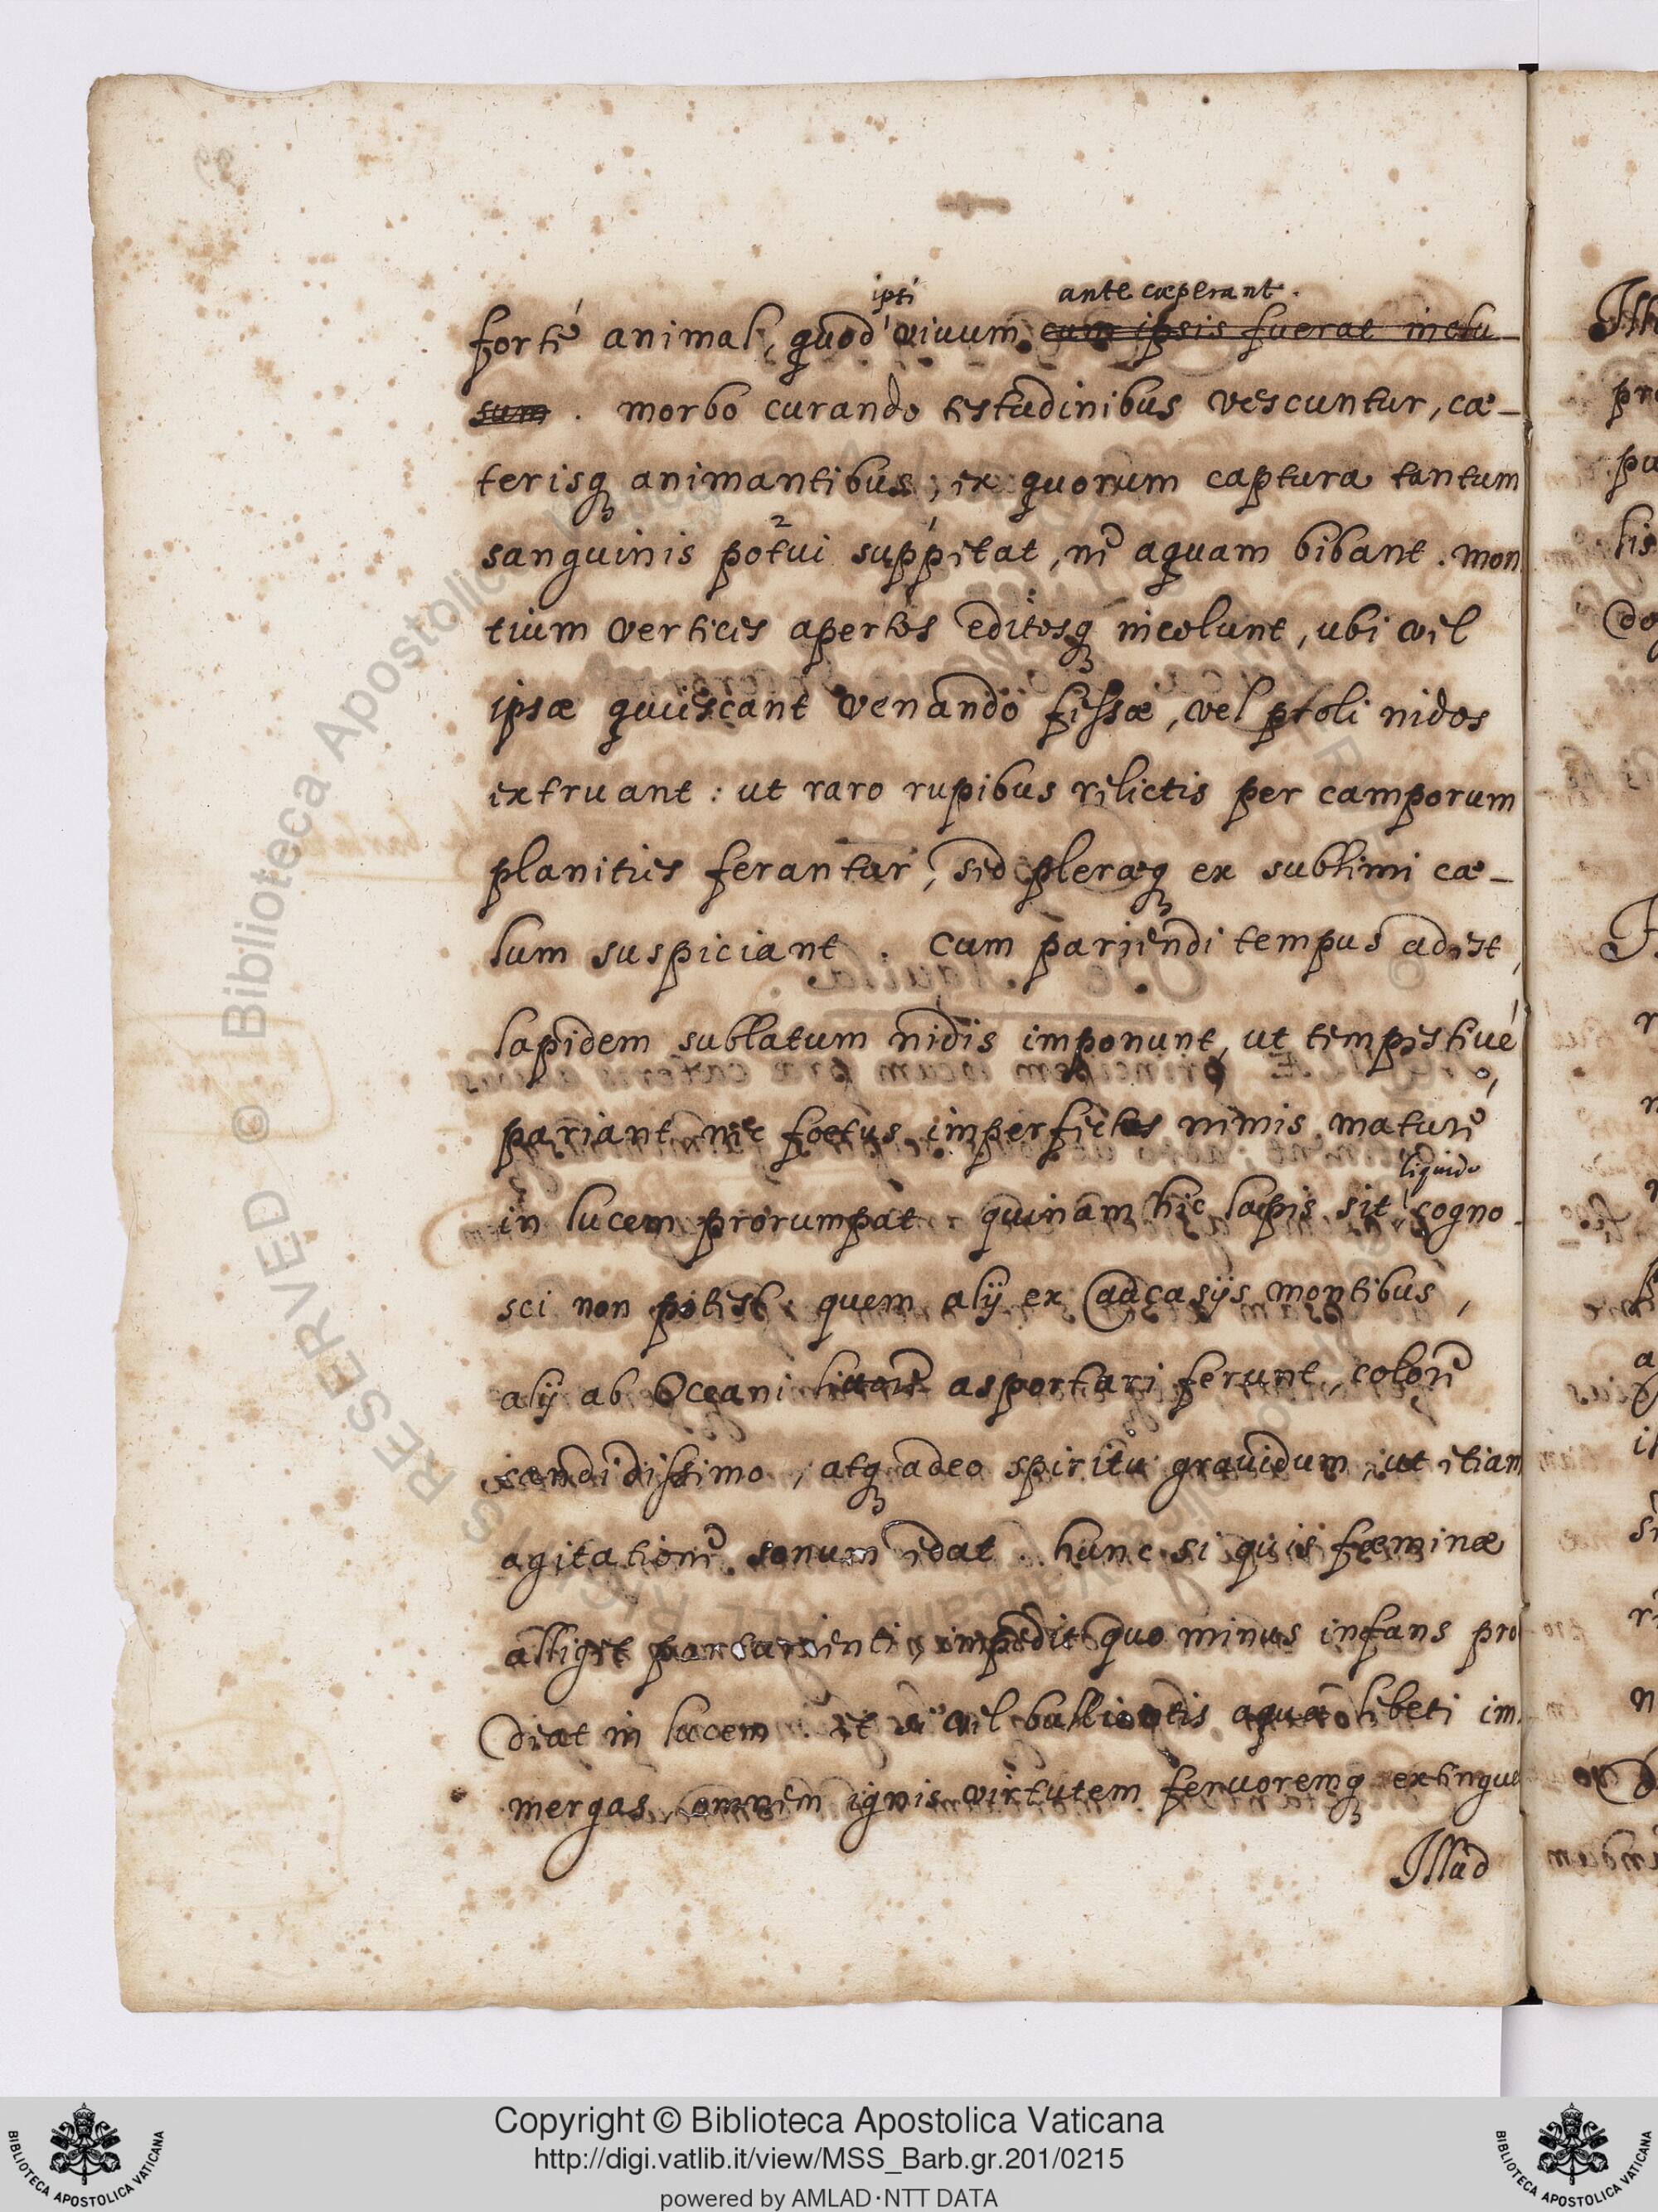 ipsi ante cæperant.
forté animal, quod viuum cum ipsis fuerat inclu-
sum . morbo curando testudinibus vescuntur, cæ-
terisq animantibus, ex quorum captura tantum
sanguinis potui suppetat, ne aquam bibant . mon
tium vertices apertos editosq incolunt, ubi vel
ipsæ quiescant venando fessæ, vel proli nidos
extruant : ut raro rupibus relictis per camporum
planities ferantur, sed pleræq ex sublimi cæ-
lum suspiciant . Cum pariendi tempus adest,
lapidem sublatum nidis imponunt, ut tempestiué
pariant nec foetus imperfectos nimis maturé
liquido
in lucem prorumpat . quinam hic lapis sit cogno-
sci non potest . quem alij ex Caucasijs montibus,
alij ab Oceani littore asportari ferunt, colore
candidissimo, atq adeo spiritu grauidum, ut etiam
agitatione sonum edat . hunc si quis fæminæ
alliget parturienti, impedit quo minus infans pro
deat in lucem . et si vel bullientis aquæ lebeti im
mergas, omnem ignis virtutem feruoremq extingue
Illud
Copyright © Biblioteca Apostolica Vaticana
http://digi.vatlib.it/view/MSS_Barb.gr.201/0215
powered by AMLAD·NTT DATA
BIBLIOTECA APOSTOLICA VATICANA
BIBLIOTECA APOSTOLICA VATICANA